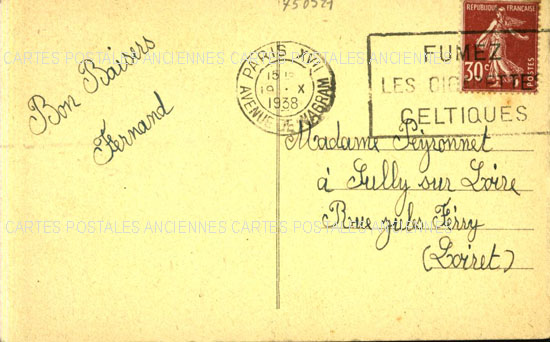 750521
RÉPUBLIQUE FRANÇAISE
30c
POSTES
PARIS XVII
15
19 - X
1938
AVENUE DE WAGRAM
FUMEZ
LES CIGARETTES
CELTIQUES
Bon Baisers
Fernand
Madame Peyronnet
à Sully sur Loire
Rue jules Ferry
(Loiret)
CARTES POSTALES ANCIENNES CARTES POSTALES ANCIENNES CARTES POSTALES ANCIENNES
CARTES POSTALES ANCIENNES CARTES POSTALES ANCIENNES CARTES POSTALES ANCIENNES